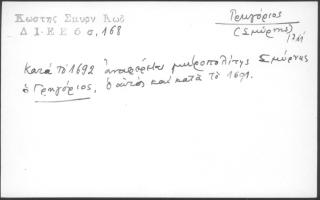 Κωστης Σμυρν Κωδ
Δ Ι·Ε Ε 6 σ, 168
Γρηγόριος
(Σμύρνης)
Κατά τό 1692 ἀναφέρεται μητροπολίτης Σμύρνης
ὁ Γρηγόριος, ὁ αὐτός καί κατά τό 1691.